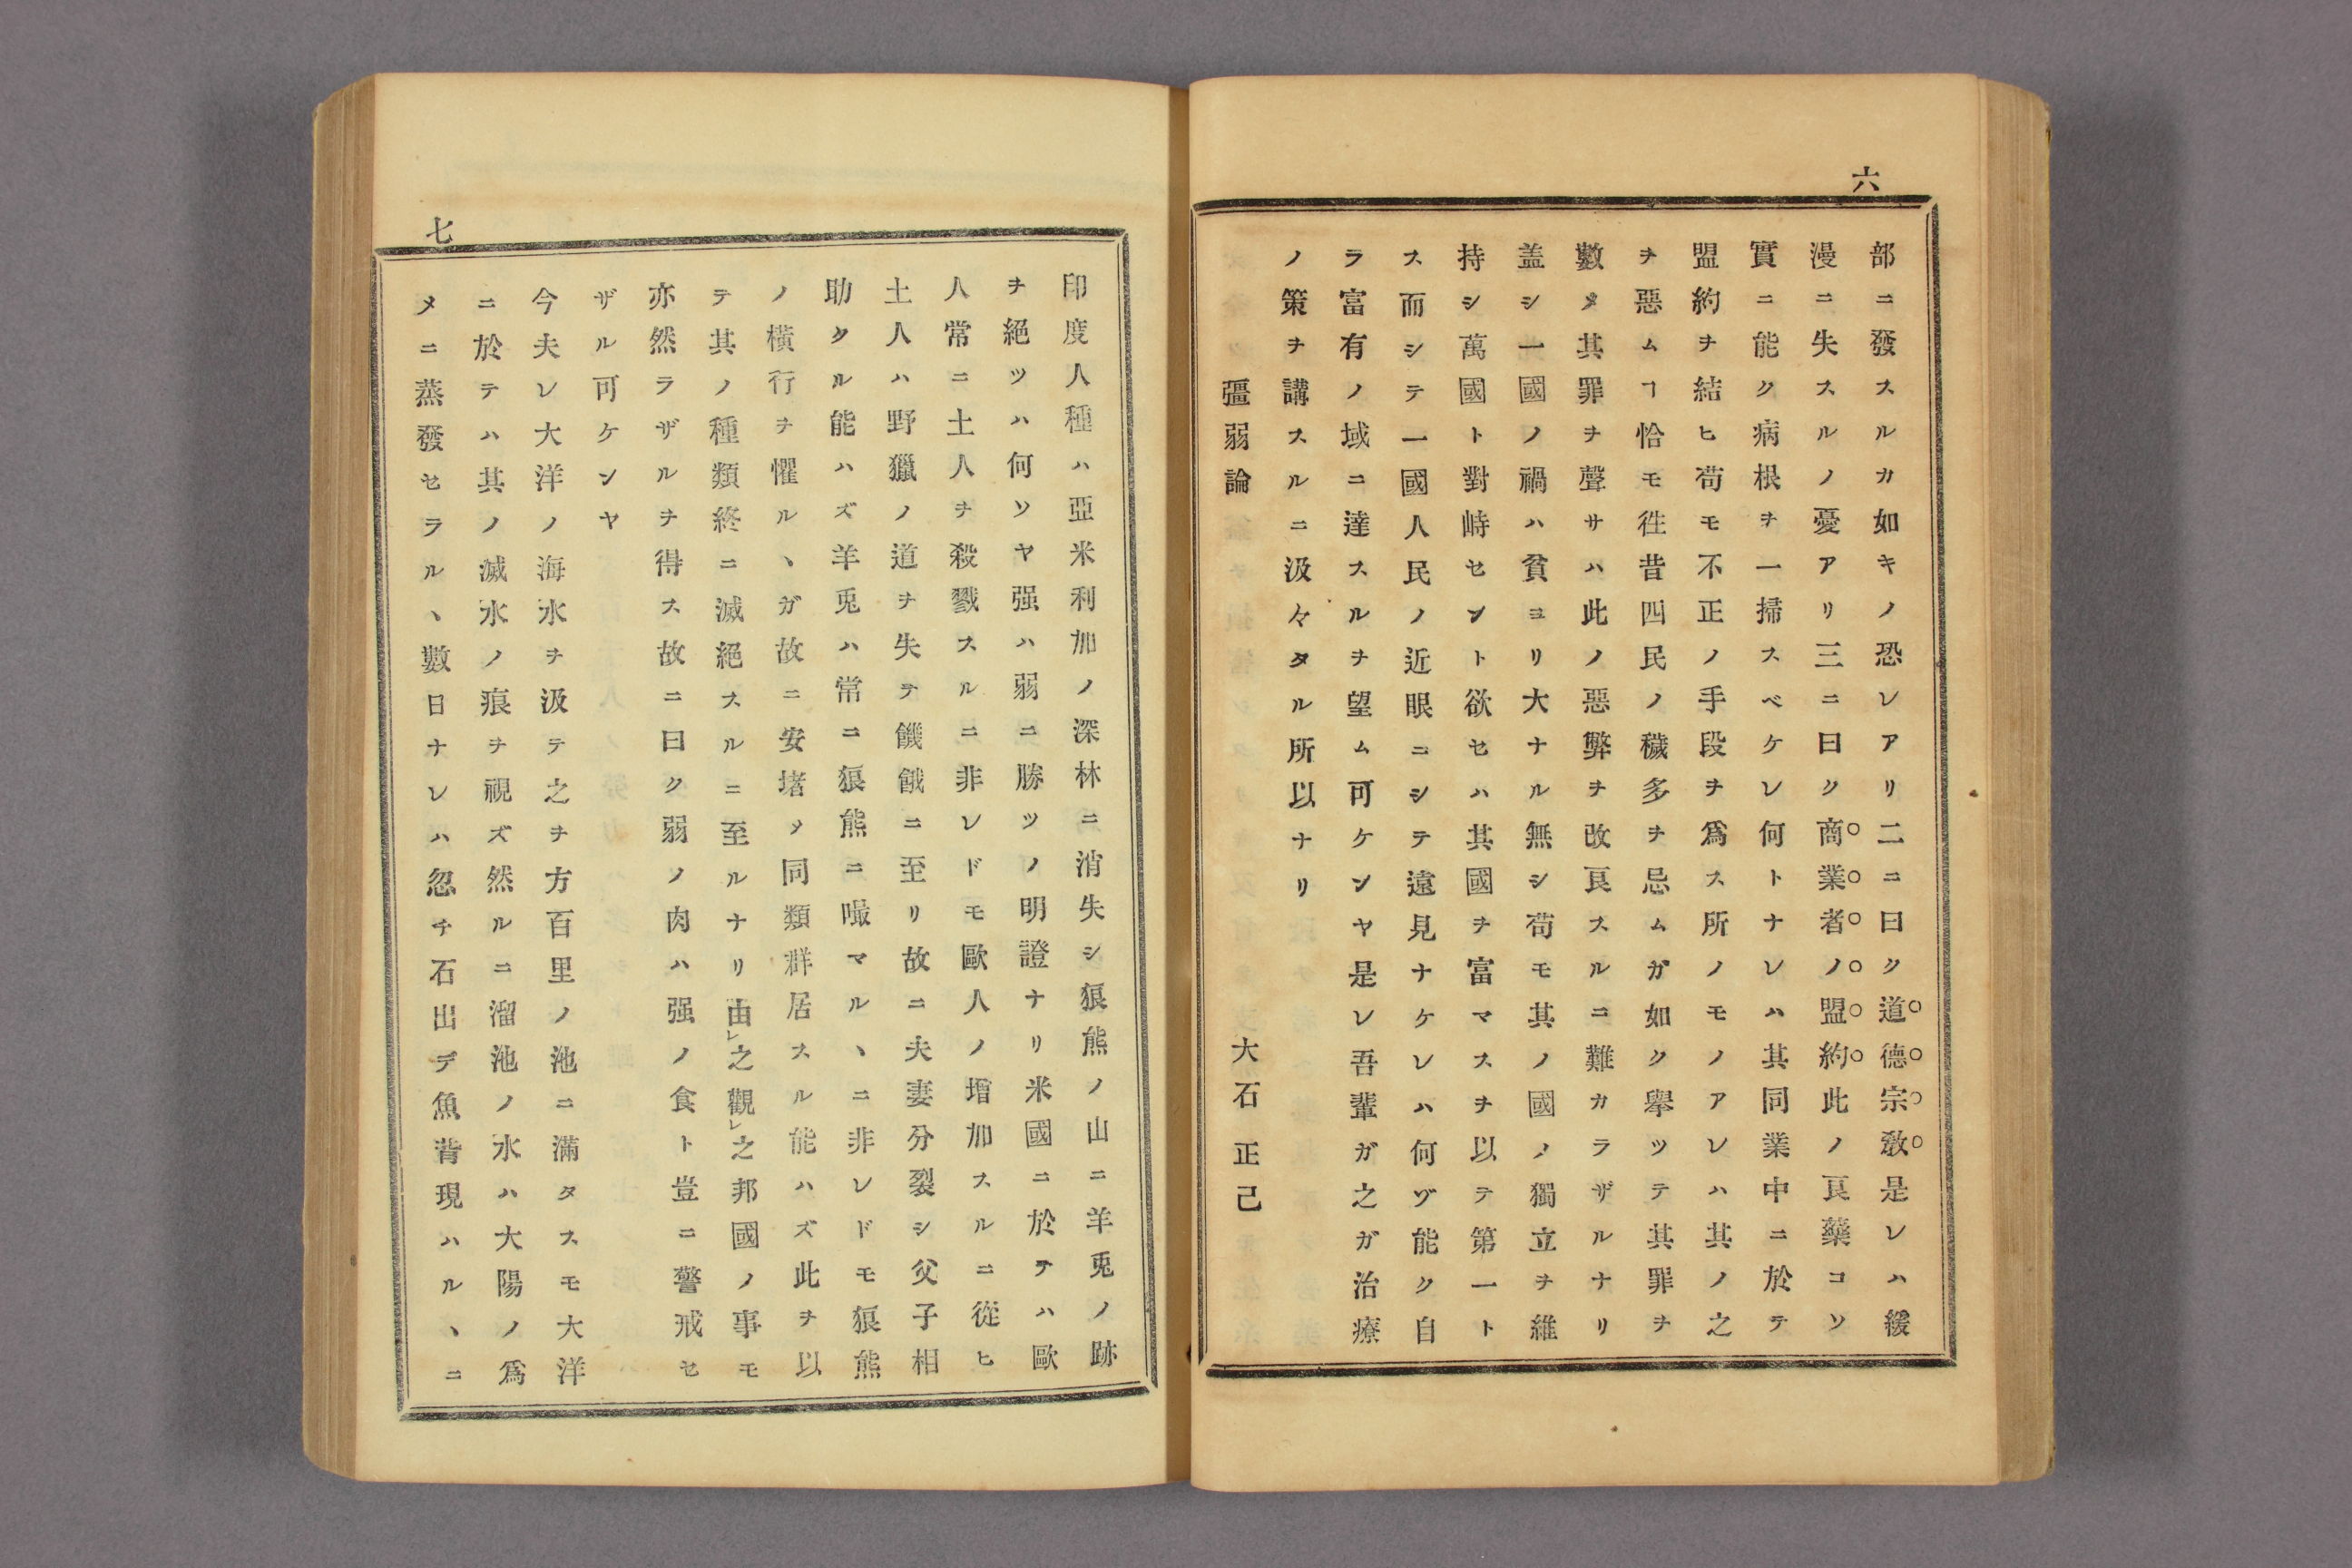 六
部ニ發スルカ如キノ恐レアリ二ニ曰ク道德宗敎是レハ緩
漫ニ失スルノ憂アリ三ニ曰ク商業者ノ盟約此ノ良藥コソ
實ニ能ク病根ヲ一掃スベケレ何トナレハ其同業中ニ於テ
盟約ヲ結ヒ苟モ不正ノ手段ヲ爲ス所ノモノアレハ其ノ之
ヲ惡ムヿ恰モ徃昔四民ノ穢多ヲ忌ムガ如ク擧ツテ其罪ヲ
數メ其罪ヲ聲サハ此ノ惡弊ヲ改良スルニ難カラザルナリ
盖シ一國ノ禍ハ貧ヨリ大ナル無シ苟モ其ノ國ノ獨立ヲ維
持シ萬國ト對峙セント欲セハ其國ヲ富マスヲ以テ第一ト
ス而シテ一國人民ノ近眼ニシテ遠見ナケレハ何ヅ能ク自
ラ富有ノ域ニ達スルヲ望ム可ケンヤ是レ吾輩ガ之ガ治療
ノ策ヲ講スルニ汲々タル所以ナリ
彊弱論 大石正己
七
印度人種ハ亞米利加ノ深林ニ消失シ狼熊ノ山ニ羊兎ノ跡
ヲ絕ツハ何ソヤ强ハ弱ニ勝ツノ明證ナリ米國ニ於テハ歐
人常ニ土人ヲ殺戮スルニ非レドモ歐人ノ增加スルニ從ヒ
土人ハ野獵ノ道ヲ失テ饑餓ニ至リ故ニ夫妻分裂シ父子相
助クル能ハズ羊兎ハ常ニ狼熊ニ嘬マルヽニ非レドモ狼熊
ノ橫行ヲ懼ルヽガ故ニ安堵メ同類群居スル能ハズ此ヲ以
テ其ノ種類終ニ滅絕スルニ至ルナリ由レ之觀レ之邦國ノ事モ
亦然ラザルヲ得ス故ニ曰ク弱ノ肉ハ强ノ食ト豈ニ警戒セ
ザル可ケンヤ
今夫レ大洋ノ海水ヲ汲テ之ヲ方百里ノ池ニ滿タスモ大洋
ニ於テハ其ノ滅水ノ痕ヲ視ズ然ルニ溜池ノ水ハ大陽ノ爲
メニ蒸發セラルヽ數日ナレハ忽チ石出デ魚背現ハルヽニ